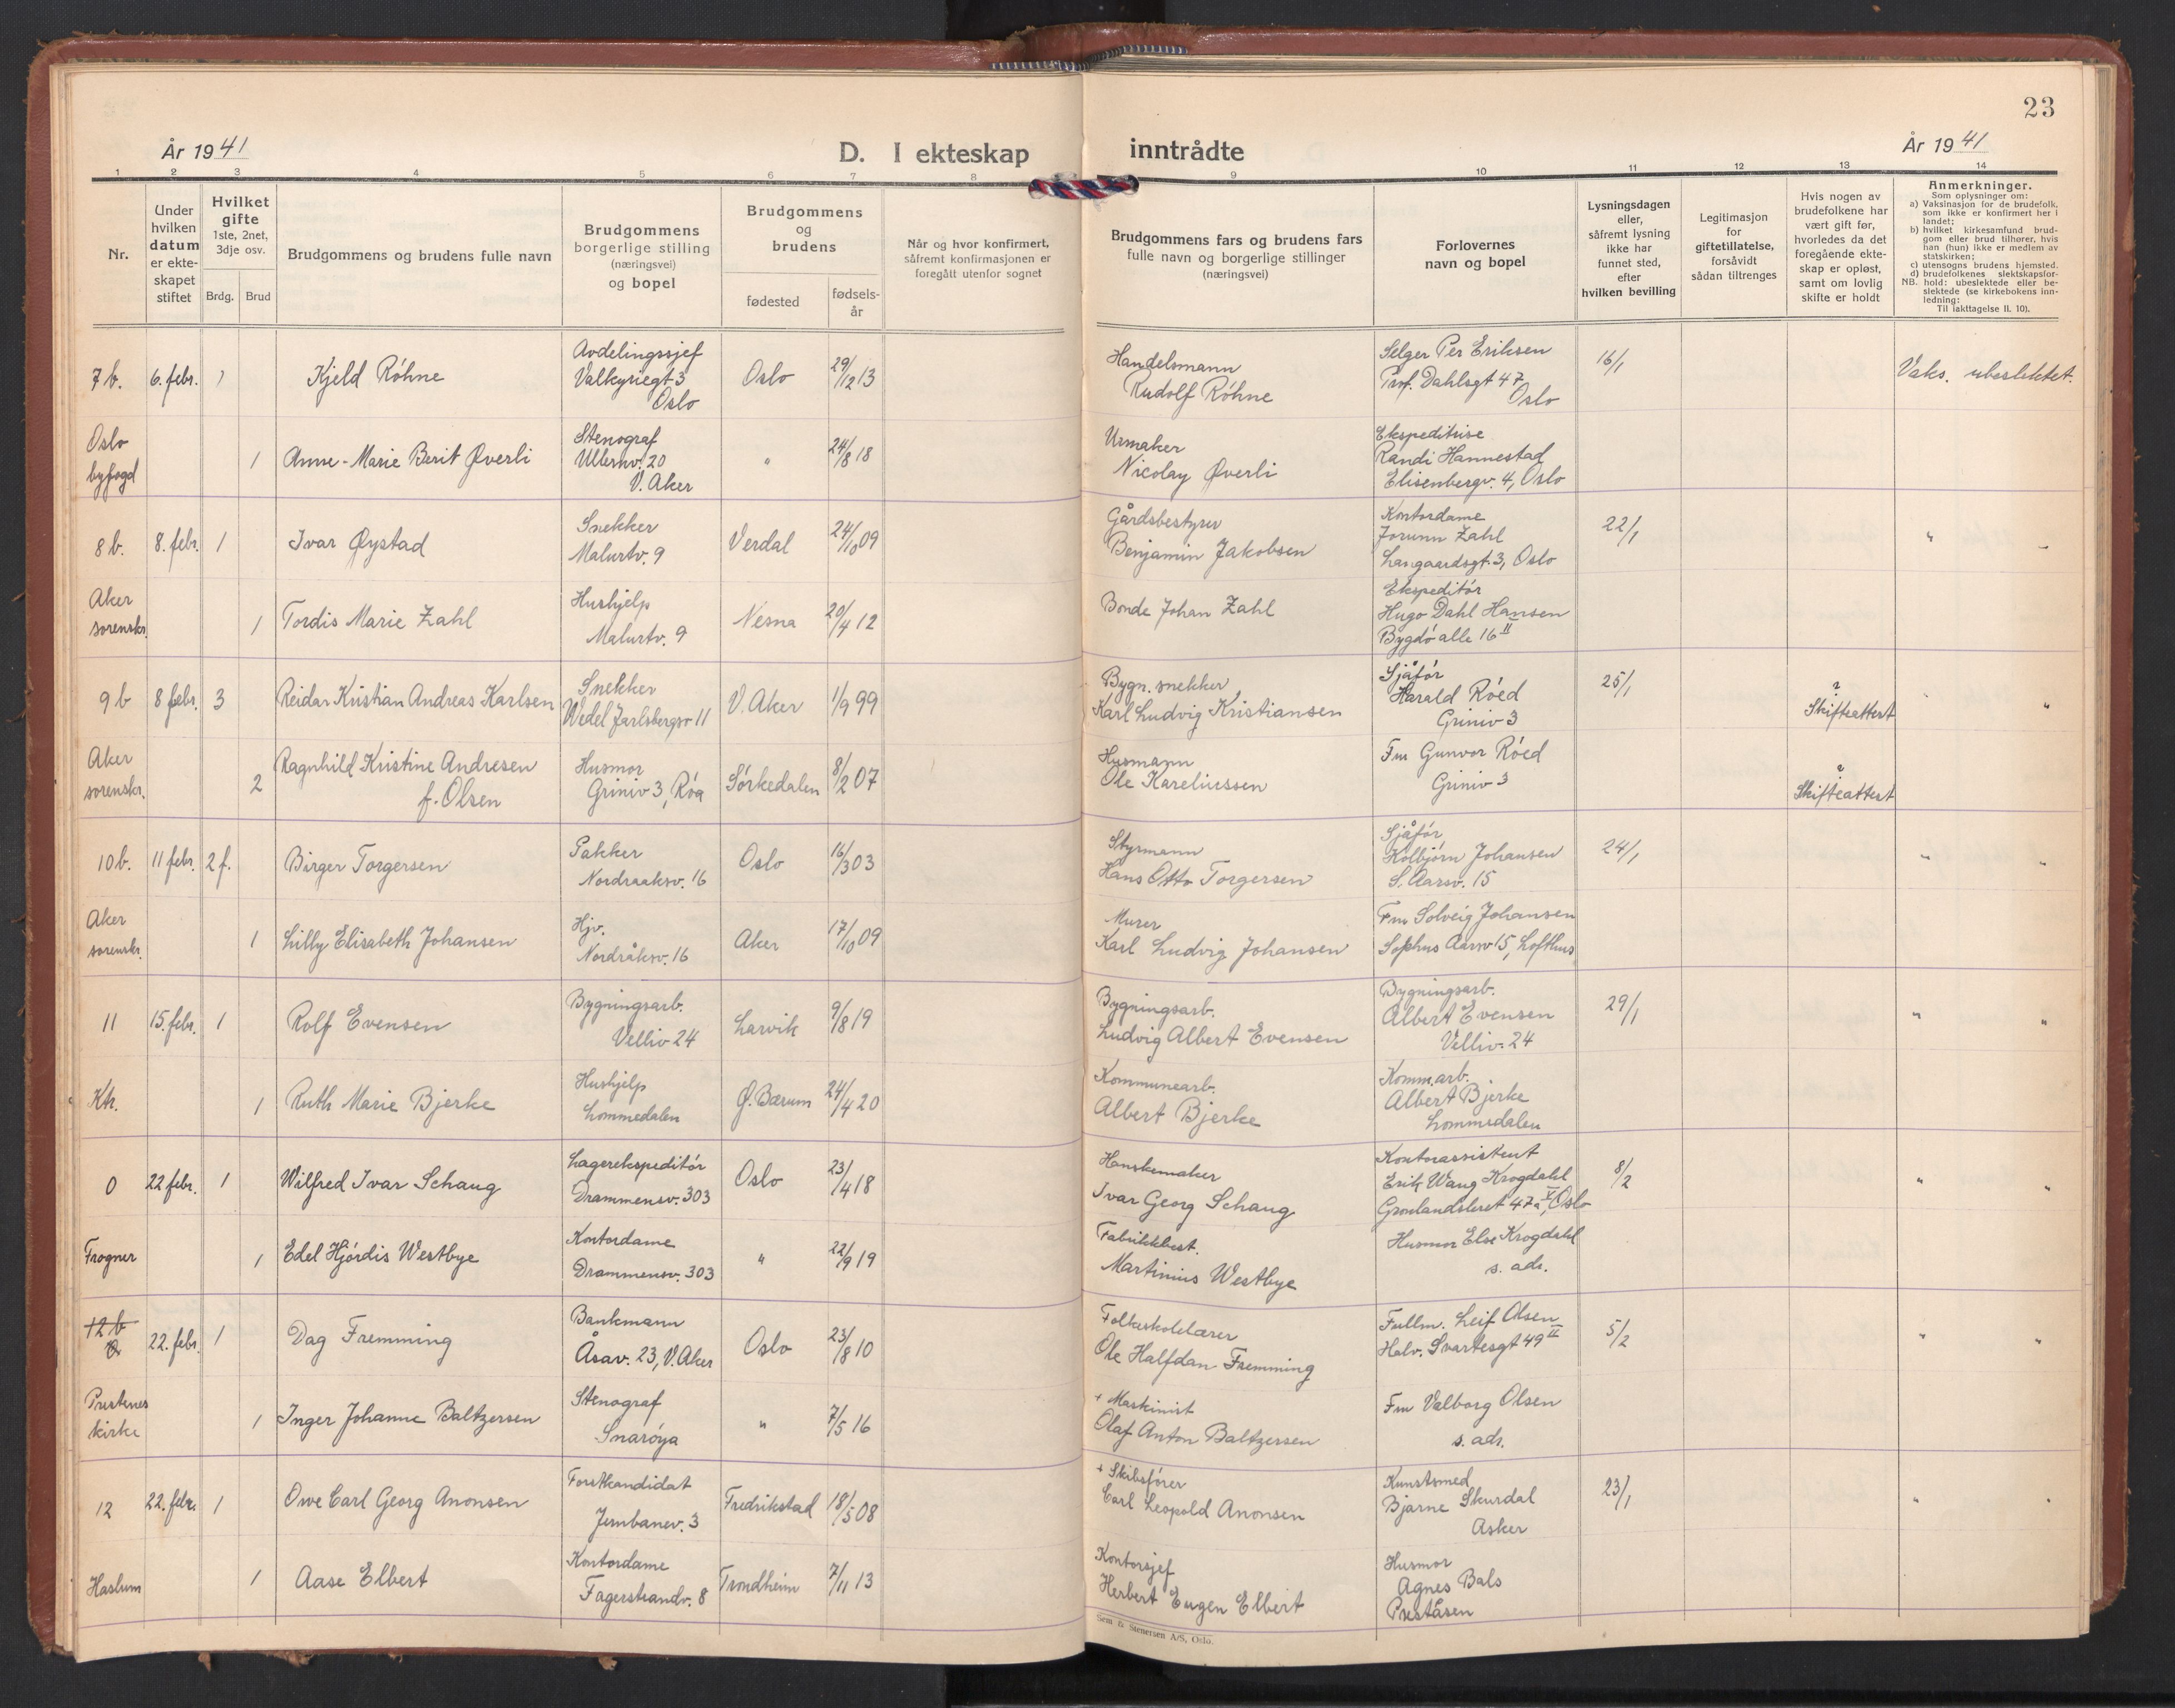 23
År 1941
D. I ekteskap inntrådte
År 1941
1 2 3 4 5 6 7 8 9 10 11 12 13 14
Nr.
Under hvilken datum er ekte-skapet stiftet
Hvilket gifte 1ste, 2net, 3dje osv.
Brdg. Brud
Brudgommens og brudens fulle navn
Brudgommens borgerlige stilling (næringsvei) og bopel
Brudgommens og brudens
fødested
fødsels-år
Når og hvor konfirmert, såfremt konfirmasjonen er foregått utenfor sognet
Brudgommens fars og brudens fars fulle navn og borgerlige stillinger (næringsvei)
Forlovernes navn og bopel
Lysningsdagen eller, såfremt lysning ikke har funnet sted, efter hvilken bevilling
Legitimasjon for giftetillatelse, forsåvidt sådan tiltrenges
Hvis nogen av brudefolkene har vært gift før, hvorledes da det foregående ekte-skap er opløst, samt om lovlig skifte er holdt
Anmerkninger.
Som oplysninger om:
a) Vaksinasjon for de brudefolk, som ikke er konfirmert her i landet;
b) hvilket kirkesamfund brud-gom eller brud tilhører, hvis han (hun) ikke er medlem av statskirken;
c) utensogns brudens hjemsted.
d) brudefolkenes slektskapsfor-hold: ubeslektede eller be-slektede (se kirkebokens inn-ledning:
NB. Til iakttagelse II. 10).
7 b. 6. febr. 1 Kjeld Röhne Avdelingssjef Valkyriegt 3 Oslo Oslo 29/12 13 Handelsmann Rudolf Röhne Selger Per Eriksen Prof. Dahlsgt 47, Oslo 16/1 Vaks. ubeslektet.
Oslo byfogd 1 Anne-Marie Berit Øverli Stenograf Ullernv. 20 V. Aker " 24/8 18 Urmaker Nicolay Øverli Ekspeditrise Randi Hannestad Elisenbergv. 4, Oslo
8 b. 8. febr. 1 Ivar Øystad Snekker Malurtv. 9 Verdal 24/10 09 Gårdsbestyrer Benjamin Jakobsen Kontordame Jorunn Zahl Langaardsgt. 3, Oslo 22/1 " "
Aker sorenskr. 1 Tordis Marie Zahl Hushjelp Malurtv. 9 Nesna 20/4 12 Bonde Johan Zahl Ekspeditör Hugo Dahl Hansen Bygdö alle 16 II
9 b 8 febr. 3 Reidar Kristian Andreas Karlsen Snekker Wedel Jarlsbergsv 11 V. Aker 1/9 99 Bygn. snekker Karl Ludvig Kristiansen Sjåför Harald Röed Griniv 3 25/1 Skifteattest "
Aker sorenskr. 2 Ragnhild Kristine Andresen f. Olsen Husmor Griniv 3, Röa Sörkedalen 8/2 07 Husmann Ole Kareliussen Fru Gunvor Röed Griniv 3 Skifteattest
10 b. 11 febr. 2 f. Birger Torgersen Pakker Nordraaksv. 16 Oslo 16/3 03 Styrmann Hans Otto Torgersen Sjåför Kolbjörn Johansen S. Aarsv. 15 24/1 " "
Aker sorenskr. 1 Lilly Elisabeth Johansen Hjv. Nordråksv. 16 Aker 17/10 09 Murer Karl Ludvig Johansen Fru Solveig Johansen Sophus Aarsv 15, Lofthus
11 15. febr. 1 Rolf Evensen Bygningsarb. Velliv 24 Larvik 9/8 19 Bygningsarb. Ludvig Albert Evensen Bygningsarb. Albert Evensen Velliv. 24 29/1 " "
Kh. 1 Ruth Marie Bjerke Hushjelp Lommedalen Ø. Bærum 24/4 20 Kommunearb. Albert Bjerke Komm.arb. Albert Bjerke Lommedalen
0 22 febr. 1 Wilfred Ivar Schaug Lagerekspeditör Drammensv. 303 Oslo 23/4 18 Hanskemaker Ivar Georg Schaug Kontorassistent Erik Wang Krogdahl Grønlandsleret 47a V, Oslo 8/2 " "
Frogner 1 Edel Hjördis Westbye Kontordame Drammensv. 303 " 22/9 19 Fabrikkbest. Martinius Westbye Husmor Else Krogdahl s. adr.
12 b 0 22. febr. 1 Dag Fremming Bankmann Åsav. 23, V. Aker Oslo 23/8 10 Folkeskolelærer Ole Halfdan Fremming Fullm. Leif Olsen Halv. Svartesgt 49 II 5/2 " "
Prestenes kirke 1 Inger Johanne Baltzersen Stenograf Snaröya " 7/5 16 + Maskinist Olaf Anton Baltzersen Fru Valborg Olsen s. adr.
12 22. febr. 1 Owe Carl Georg Anonsen Forstkandidat Jernbanev. 3 Fredrikstad 18/5 08 + Skibsförer Carl Leopold Anonsen Kunstsmed Bjarne Skurdal Asker 23/1 " "
Haslum 1 Aase Elbert Kontordame Fagerstrandv. 8 Trondheim 7/11 13 Kontorsjef Herbert Eugen Elbert Husmor Agnes Bals Preståsen
Sem & Stenersen A/S, Oslo.